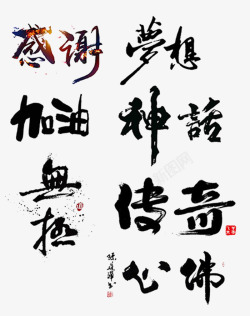 感谢
夢想
加油
神話
無極
传奇
心佛